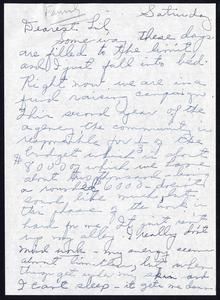 Family
Saturday
Dearest Lil
Someway these days
are filled to the limit
and I just fall into bed.
Right now we are in a
fund raising campaign.
This second year of the
agency the community is
responsible for 1/2 of the
budget which is about
80000 which we have
about
a round 6000 - doesn't
sound like much but
this phase of the work is
hard for me. It just
me really. I really don't
mind work - my energy seems
about limitless, but when
things get under my skin and
I can't sleep - it gets me down